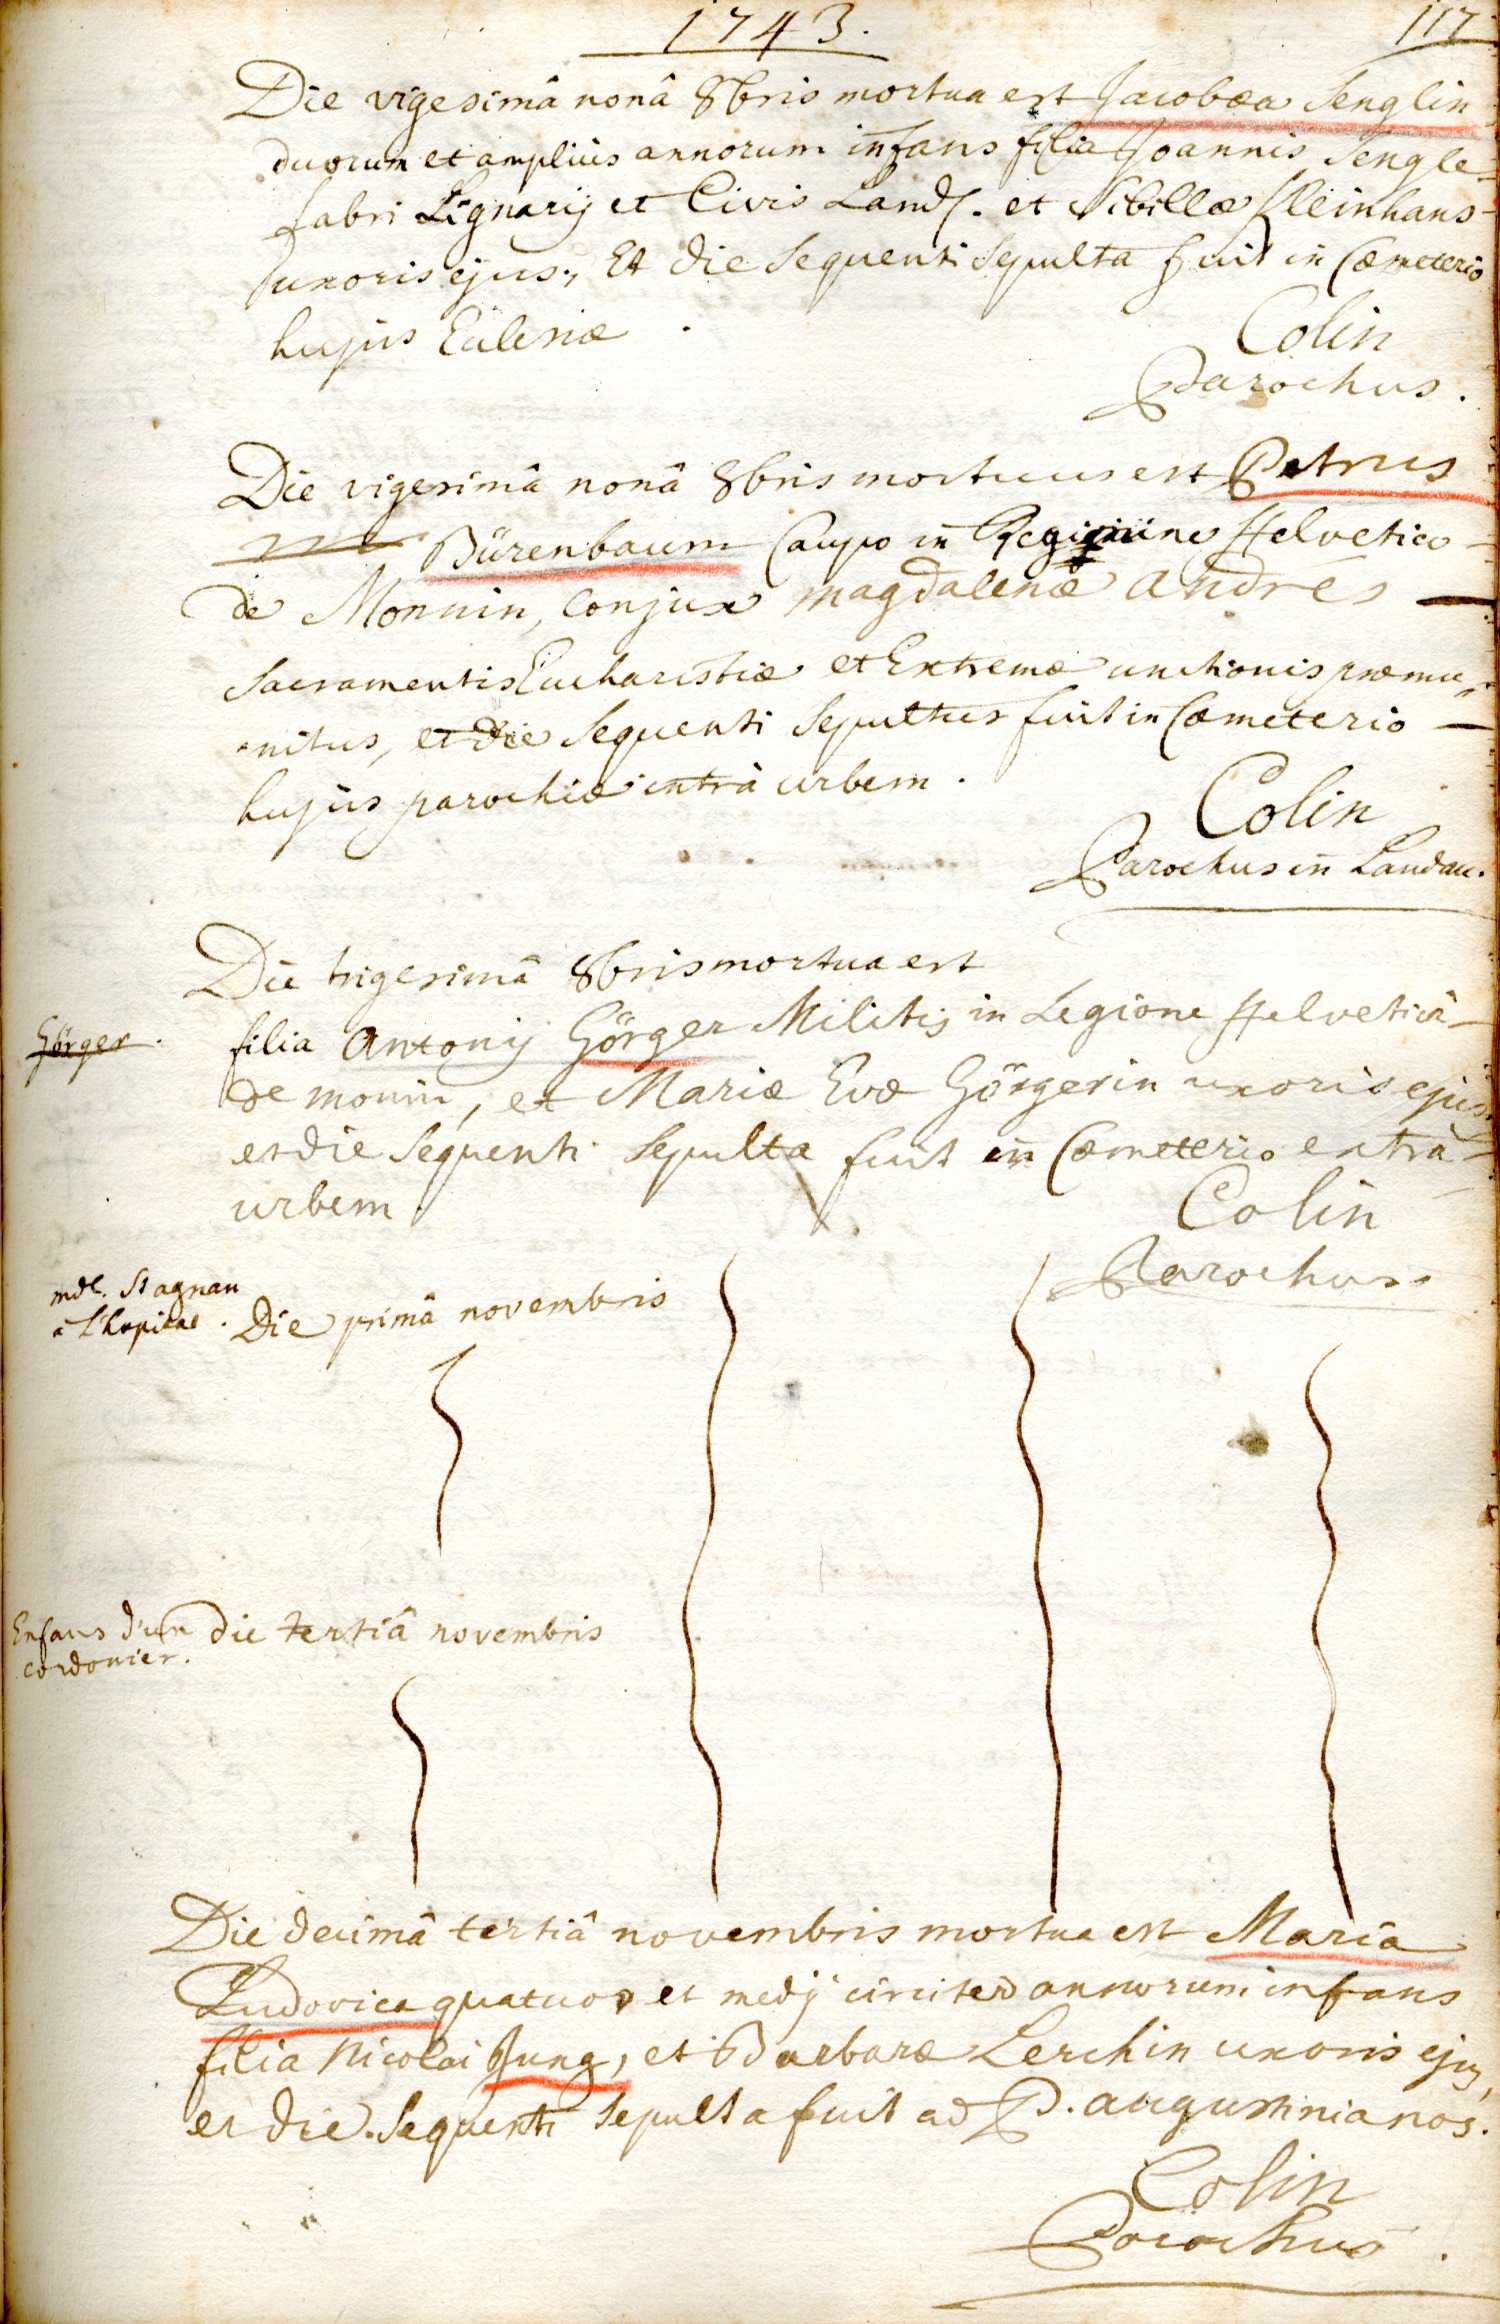 1743.
117
Die vigesimâ nonâ 8bris mortua est Jacobæa Senglin
duorum et ampliùs annorum infans filia Joannis Sengle
fabri Lignarij et Civis Land. et Sibillæ Kleinhans
uxoris ejus, Et die sequenti sepulta fuit in Cœmeterio
hujus Eclesiæ.
Colin
Parochus.
Die vigesimâ nonâ 8bris mortuus est Petrus
Bürenbaum Caupo in Regimine Helvetico
de Monnin, Conjux Magdalenæ andrés
Sacramentis Eucharistiæ et Extremæ unctionis præmu-
nitus, et die sequenti Sepultus fuit in Cœmeterio
hujus parochiæ intrà urbem.
Colin
Parochus in Landau.
Die trigesimâ 8bris mortua est
Görger.
filia Antonij Görger Militis in Legione Helveticâ
de monin, et Mariæ Evæ Görgerin uxoris ejus
et die sequenti sepulta fuit in Cœmeterio extrà
urbem.
Colin
Parochus.
mdl. Stagnau
a L'hopital.
Die primâ novembris
Enfans d'un
cordonier.
die tertiâ novembris
Die decimâ tertiâ novembris mortua est Maria
Ludovica quatuor et medij circiter annorum infans
filia Nicolai Jung, et Barbaræ Lerchin uxoris ejus,
et die sequenti sepulta fuit ad P. augustinianos.
Colin
Parochus.